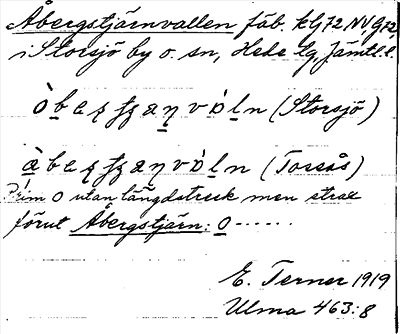 Åbergstjärnvallen fäb. kg 72 NV, G 72,
i Storsjö by o. sn, Hede tg, Jämtl. l.
(Storsjö)
(Tossås)
Prim o utan längdstreck men strax
förut Åbergstjärn: o-----
E. Terner 1919
Ulma 463:8